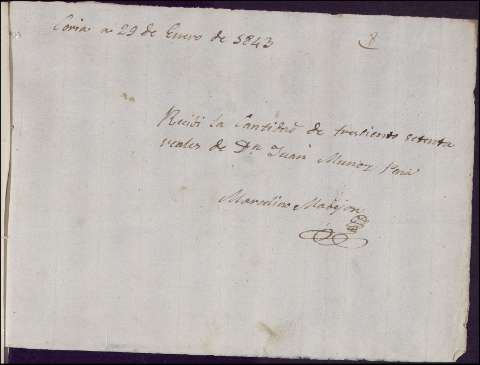 Coria a 29 de Enero de 1843
Recibi la Cantidad de trescientos setenta
reales de Dn Juan Muñoz Peña
Marcelino